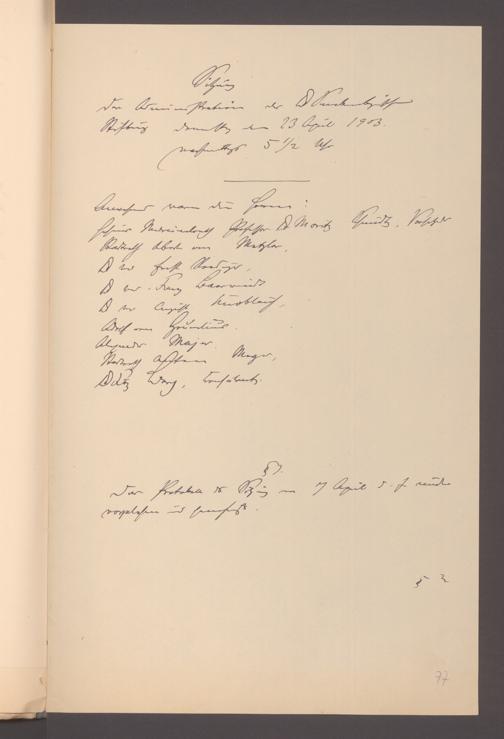 Sitzung
der Administration der Dr Senckenbergischen
Stiftung Donnerstag den 23 April 1903.
nachmittags 5 1/2 Uhr
Anwesend waren die Herren:
Geheimer Medicinalrath Professor Dr Moritz Schmidt, Vorsitzender
Stadtrath Albert von Metzler,
Dr med. Ernst
Dr med. Franz
Dr med. August Knoblauch,
Adolf von Grunelius.
Alexander Majer.
Stadtrath Meyer,
§ 1.
Das Protokoll der Sitzung vom 7 April d. J. wurde
vorgelesen und genehmigt.
§ 2
77